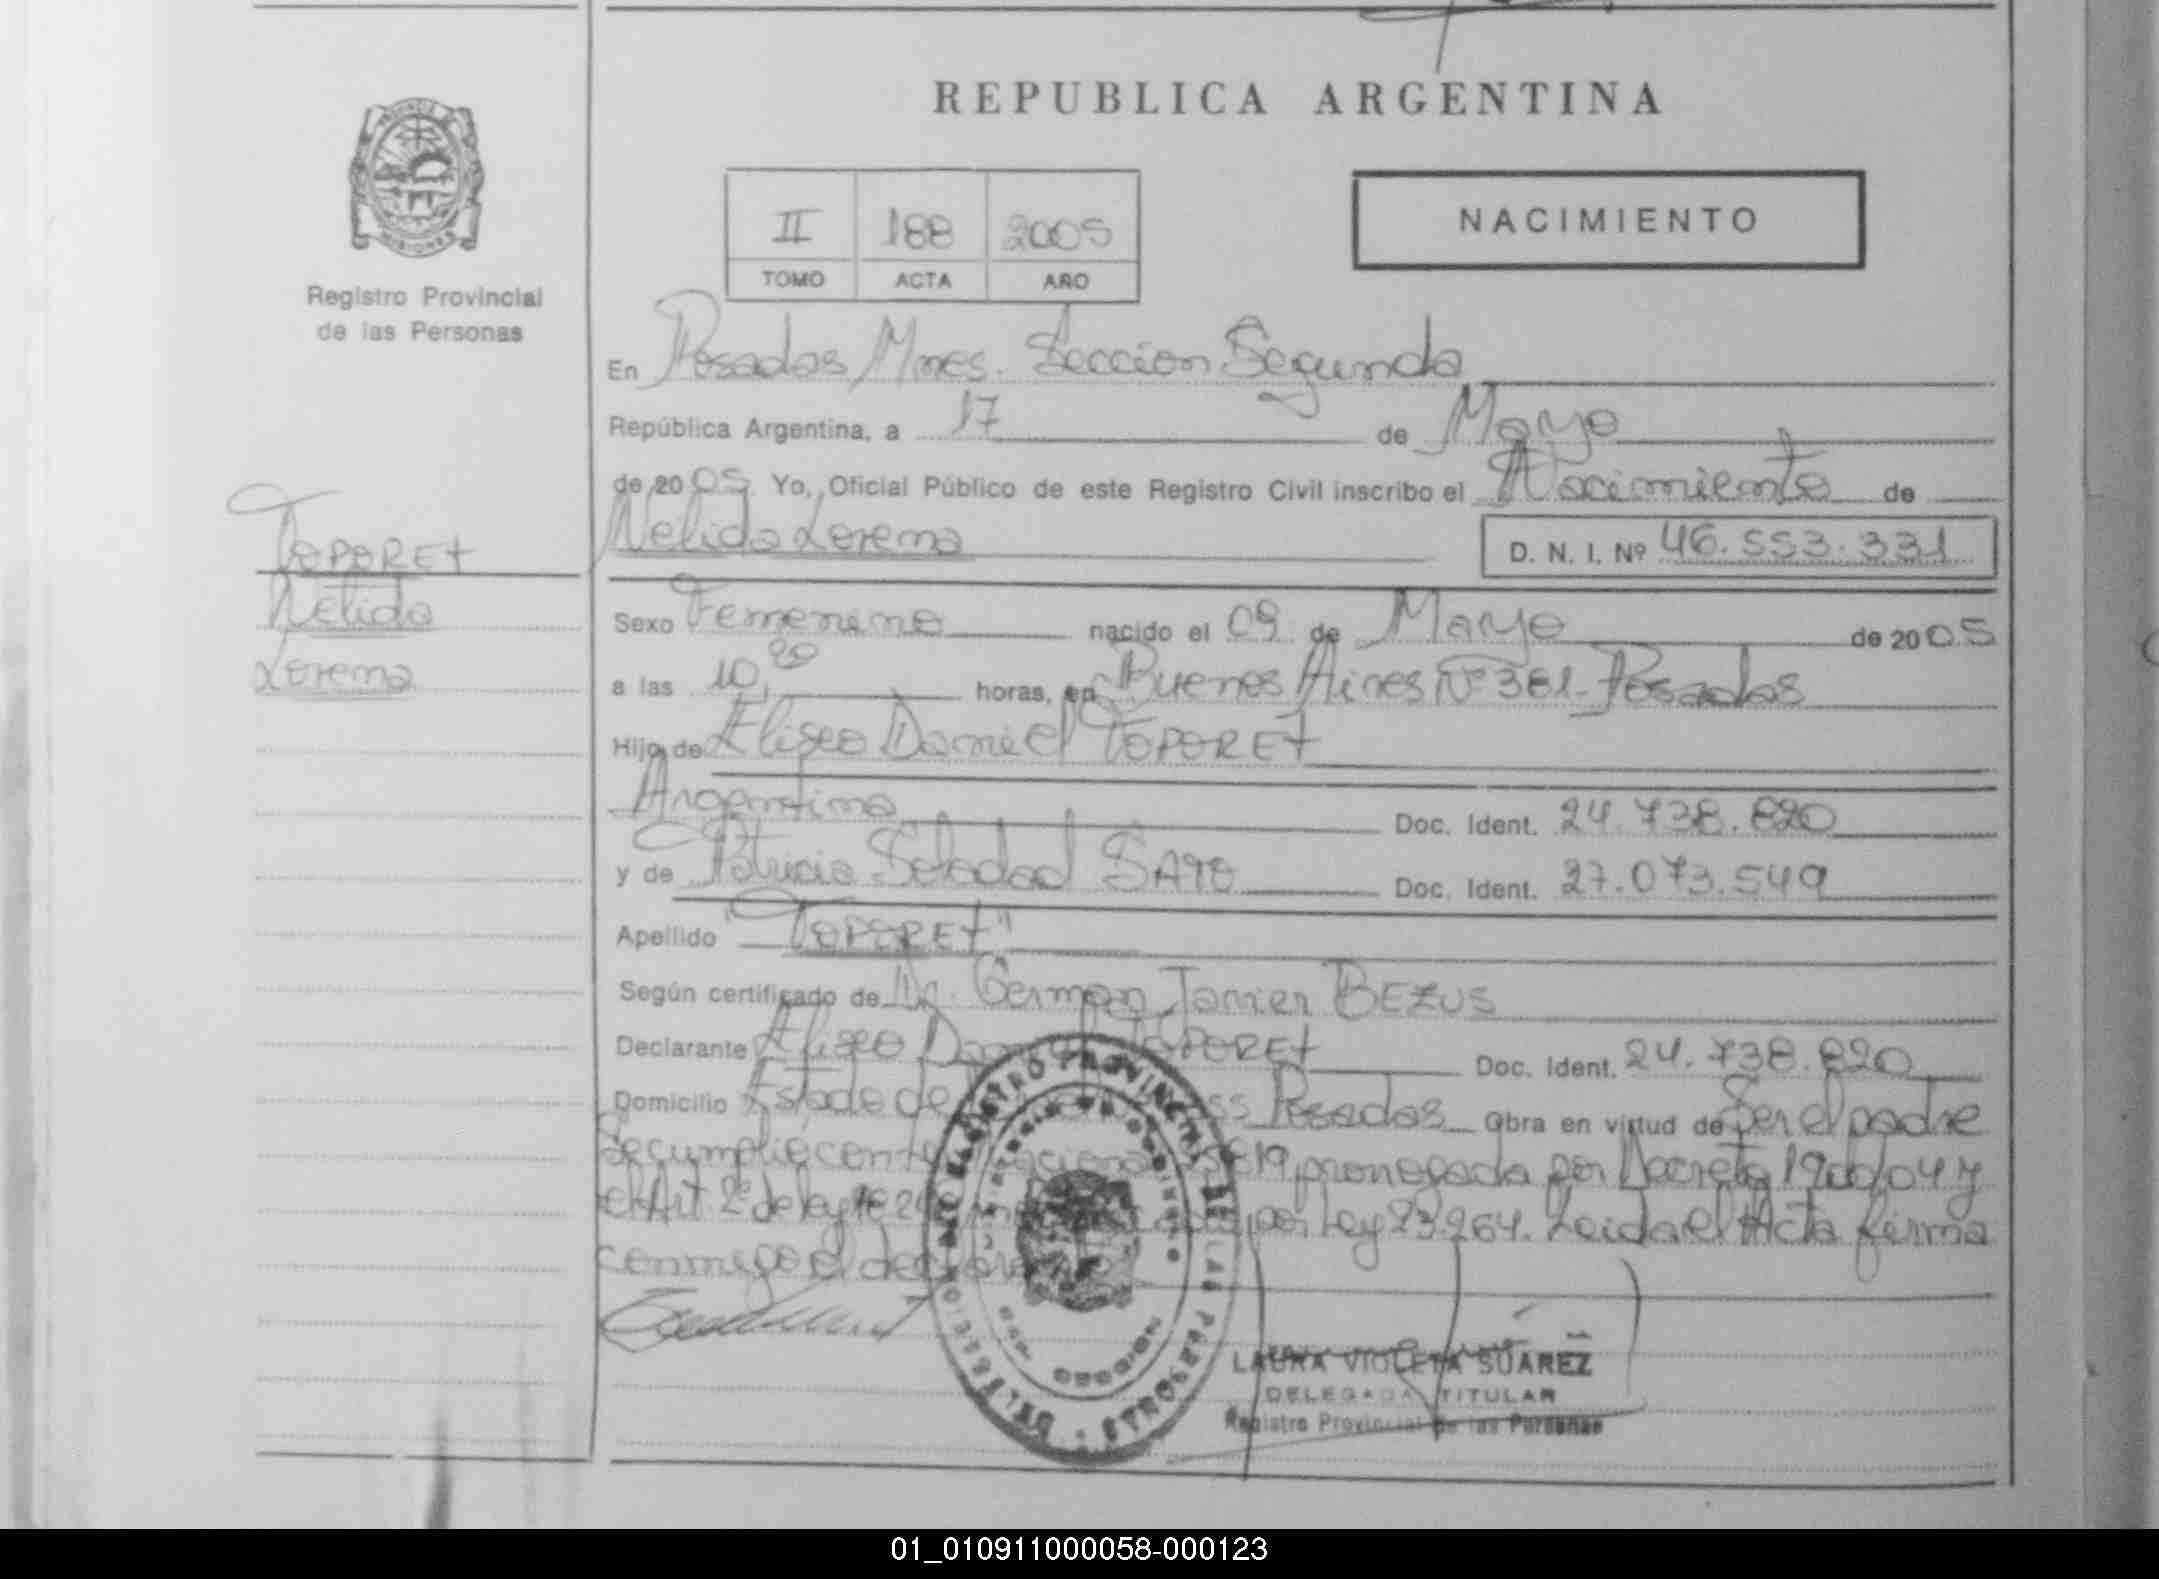 REPUBLICA ARGENTINA
PROVINCIA
MISIONES
Registro Provincial
de las Personas
II 188 2005
TOMO ACTA AÑO
NACIMIENTO
En Posadas Mnes. Seccion Segunda
República Argentina, a 17 de Mayo
de 2005. Yo, Oficial Público de este Registro Civil inscribo el Nacimiento de
Nelida Lorena
D. N. I. Nº 46.553.331
TOPORET
Nelida
Lorena
Sexo Femenino nacido el 09 de Mayo de 2005
a las 10,20 horas, en Buenos Aires Nº 381-Posadas
Hijo de Eliseo Daniel TOPORET
Argentina Doc. Ident. 24.738.820
y de Patricia Soledad Doc. Ident. 27.073.549
Apellido "TOPORET"
Según certificado de Dr. German Javier BEZUS
Declarante Eliseo Daniel TOPORET Doc. Ident. 24.738.820
Domicilio Estado de Posadas Obra en virtud de Ser el padre
Se cumplio con prorrogada por Decreto 1900/04 y
el Art. 2º de ley Nº por Ley 23.264. Leida el Acta firma
conmigo el declarante
REGISTRO PROVINCIAL DE LAS PERSONAS
POSADAS
MISIONES
LAURA VIOLETA SUAREZ
DELEGADA TITULAR
Registro Provincial de las Personas
01_010911000058-000123